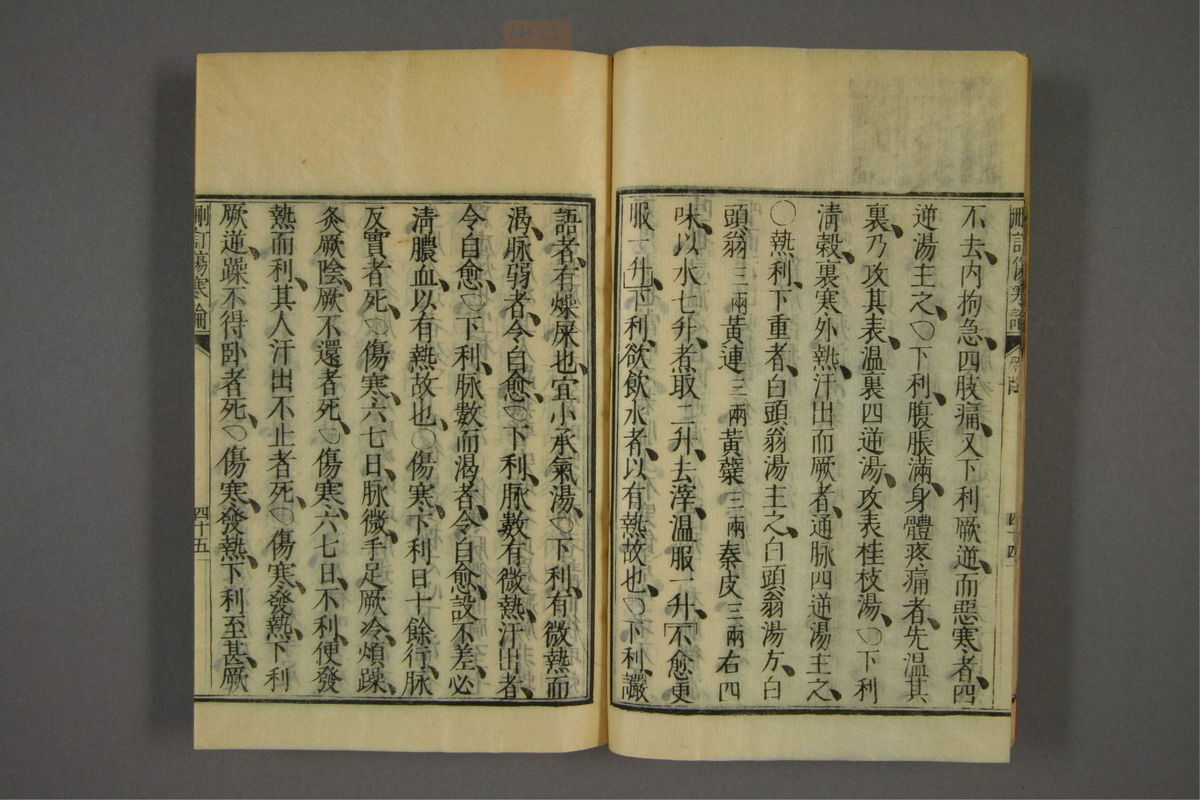 刪訂傷寒論
四十四
不去、内拘急、四肢痛、又下利厥逆、而惡寒者、四
逆湯主之、○下利、腹脹滿、身體疼痛者、先温其
裏、乃攻其表、温裏四逆湯、攻表桂枝湯、○下利
淸穀、裏寒外熱、汗出而厥者、通脉四逆湯主之、
○熱利、下重者、白頭翁湯主之、白頭翁湯方、白
頭翁三兩黃連三兩黃蘗三兩秦皮三兩右四
味、以水七升、煮取二升、去滓、温服一升、「不愈更
服一升」、下利、欲飮水者、以有熱故也、○下利、讝
語者、有燥屎也、宜小承氣湯、○下利、有微熱而
渴、脉弱者、令自愈、○下利、脉數、有微熱、汗出者、
令自愈、○下利、脉數而渴者、令自愈、設不差、必
淸膿血、以有熱故也、○傷寒、下利日十餘行、脉
反實者死、○傷寒六七日、脉微、手足厥冷、煩躁、
灸厥陰、厥不還者死、○傷寒、六七日、不利、便發
熱而利、其人汗出不止者死、○傷寒、發熱、下利
厥逆、躁不得卧者死、○傷寒、發熱、下利至甚、厥
刪訂傷寒論
四十五